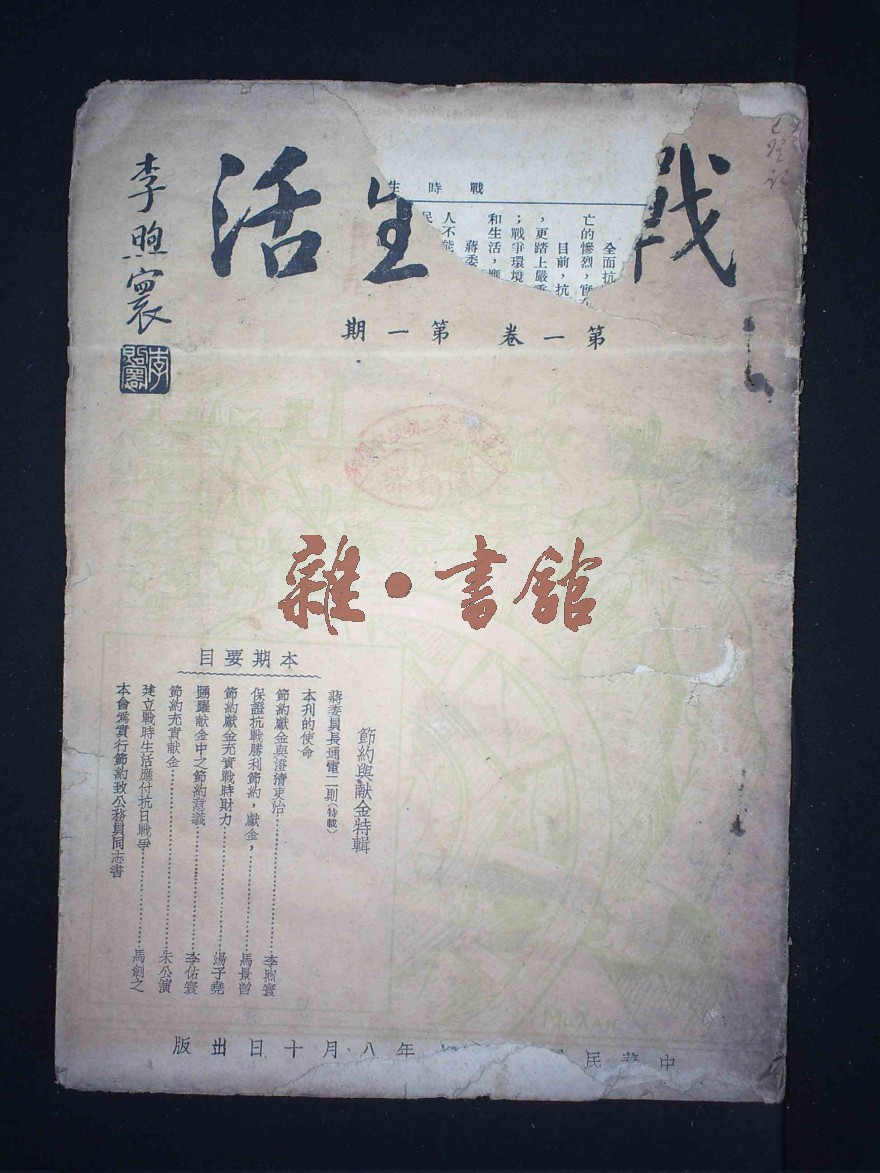 戰 生活
李煦寰
李煦寰
戰時生
全面抗
亡的慘烈，實
目前，抗
，更踏上嚴
；戰爭環境
和生活，應
蔣委
人不能
民
第一卷 第一期
雜·書館
本期要目
節約與獻金特輯
蔣委員長通電二期（特載）
本刊的使命
節約獻金與澄清吏治……李煦寰
保證抗戰勝利節約，獻金，……馬景曾
節約獻金充實戰時財力……湯子堯
踴躍献金中之節約意義……李佑寰
節約充實献金……朱公演
建立戰時生活應付抗日戰爭……馬劍之
本會為實行節約致公務員同志書
中華民 年八月十日出版